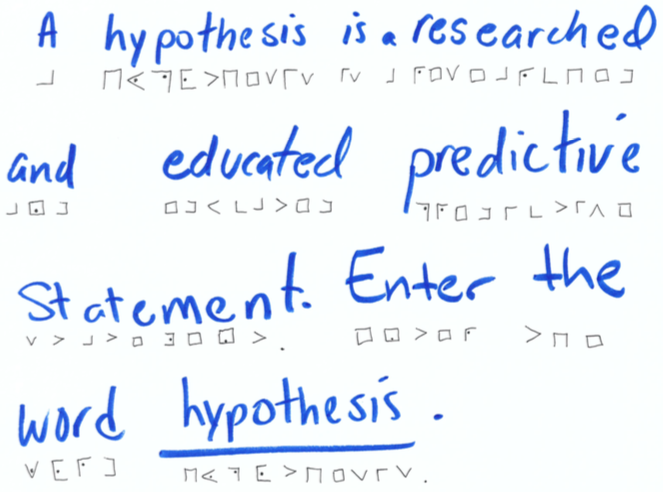 A hypothesis is a researched
and educated predictive
Statement. Enter the
word hypothesis.